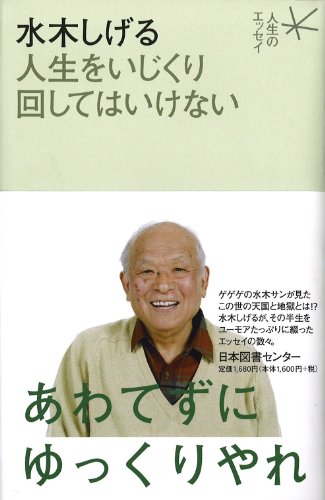 水木しげる
人生をいじくり
回してはいけない
人生の
エッセイ
ゲゲゲの水木サンが見た
この世の天国と地獄とは!?
水木しげるが、その半生を
ユーモアたっぷりに綴った
エッセイの数々。
日本図書センター
定価1,680円(本体1,600円+税)
あわてずに
ゆっくりやれ